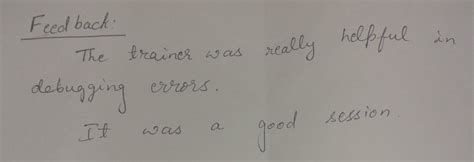 Feedback:
The trainer was really helpful in
debugging errors.
It was a good session.